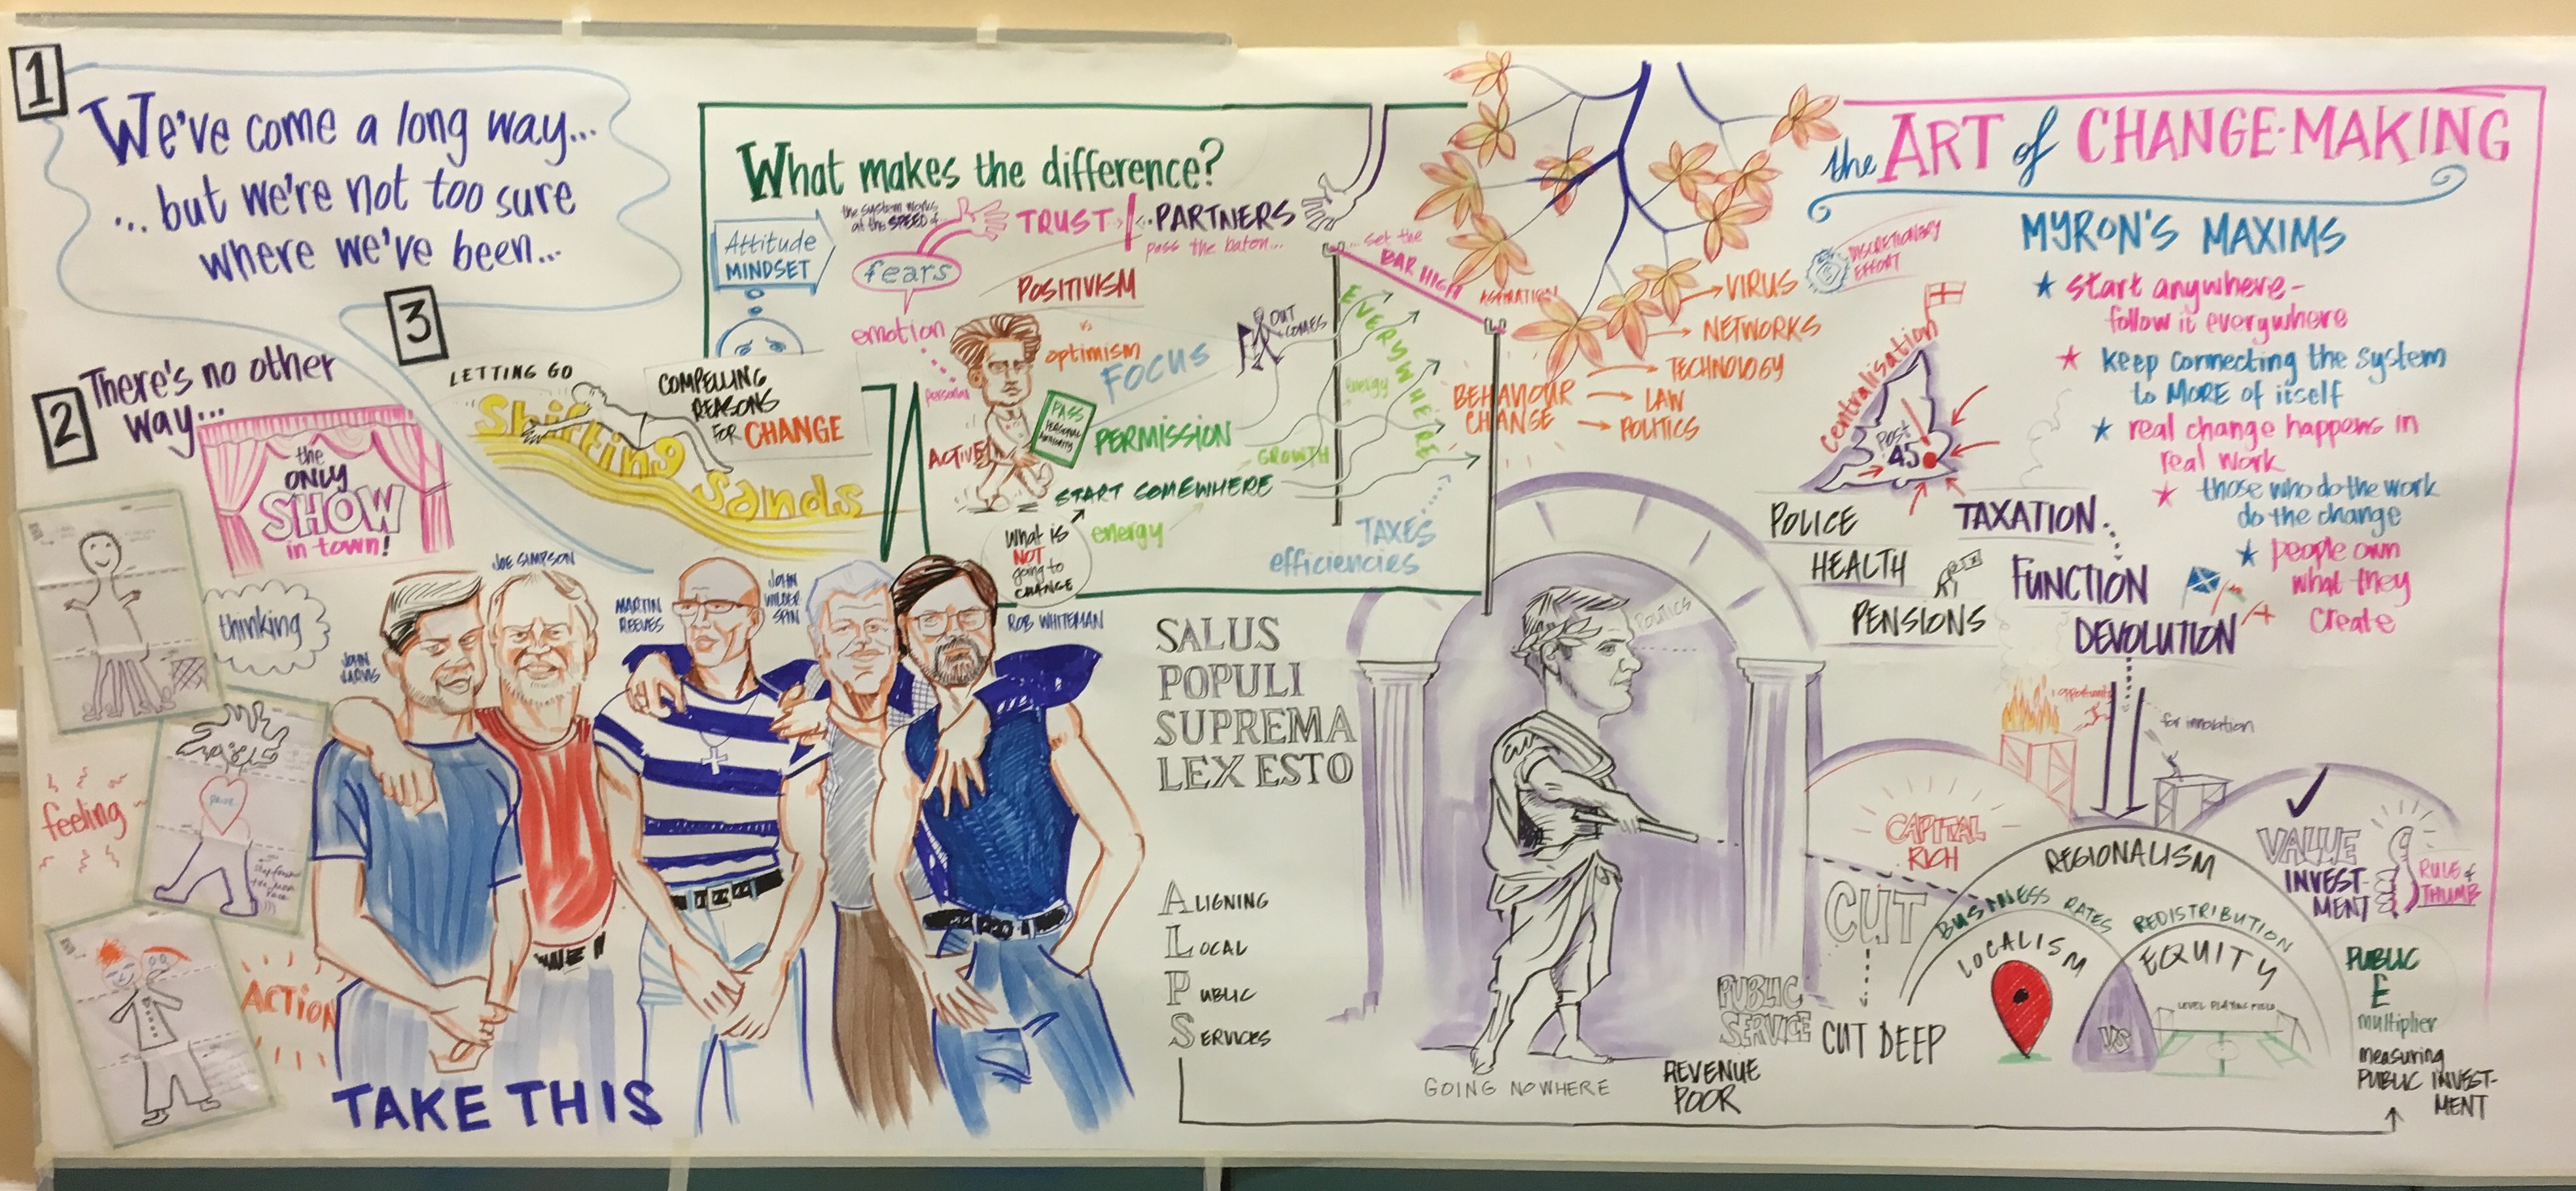 1
We've come a long way...
...but we're not too sure
where we've been...
2
There's no other
way...
the
ONLY
SHOW
in town!
3
LETTING GO
Shifting
Sands
COMPELLING
REASONS
FOR CHANGE
thinking
feeling
ACTION
JOHN
JARVIS
JOE SIMPSON
MARTIN
REEVES
JOHN
WILDER
SPIN
ROB WHITEMAN
TAKE THIS
What makes the difference?
Attitude
MINDSET
the system works
at the SPEED of...
TRUST
PARTNERS
pass the baton...
fears
emotion
personal
POSITIVISM
vs
optimism
FOCUS
ACTIVE
PASS
PERSONAL
AUTHORITY
PERMISSION
START SOMEWHERE
What is
NOT
going to
CHANGE
energy
GROWTH
OUT
COMES
EVERYWHERE
energy
...set the
BAR HIGH
ASPIRATION
TAXES
efficiencies
BEHAVIOUR
CHANGE
VIRUS
NETWORKS
TECHNOLOGY
LAW
POLITICS
SALUS
POPULI
SUPREMA
LEX ESTO
ALIGNING
LOCAL
PUBLIC
SERVICES
POLITICS
GOING NOWHERE
PUBLIC
SERVICE
REVENUE
POOR
the ART of CHANGE-MAKING
DISCRETIONARY
EFFORT
MYRON'S MAXIMS
start anywhere-
follow it everywhere
keep connecting the system
to MORE of itself
real change happens in
real work
those who do the work
do the change
people own
what they
create
Centralisation
Post
45
POLICE
HEALTH
PENSIONS
TAXATION
FUNCTION
DEVOLUTION
opportunity
for innovation
CAPITAL
RICH
CUT
CUT DEEP
REGIONALISM
BUSINESS RATES REDISTRIBUTION
LOCALISM
VS
EQUITY
LEVEL PLAYING FIELD
VALUE
INVEST-
MENT
RULE of
THUMB
PUBLIC
£
multiplier
measuring
PUBLIC INVEST-
MENT